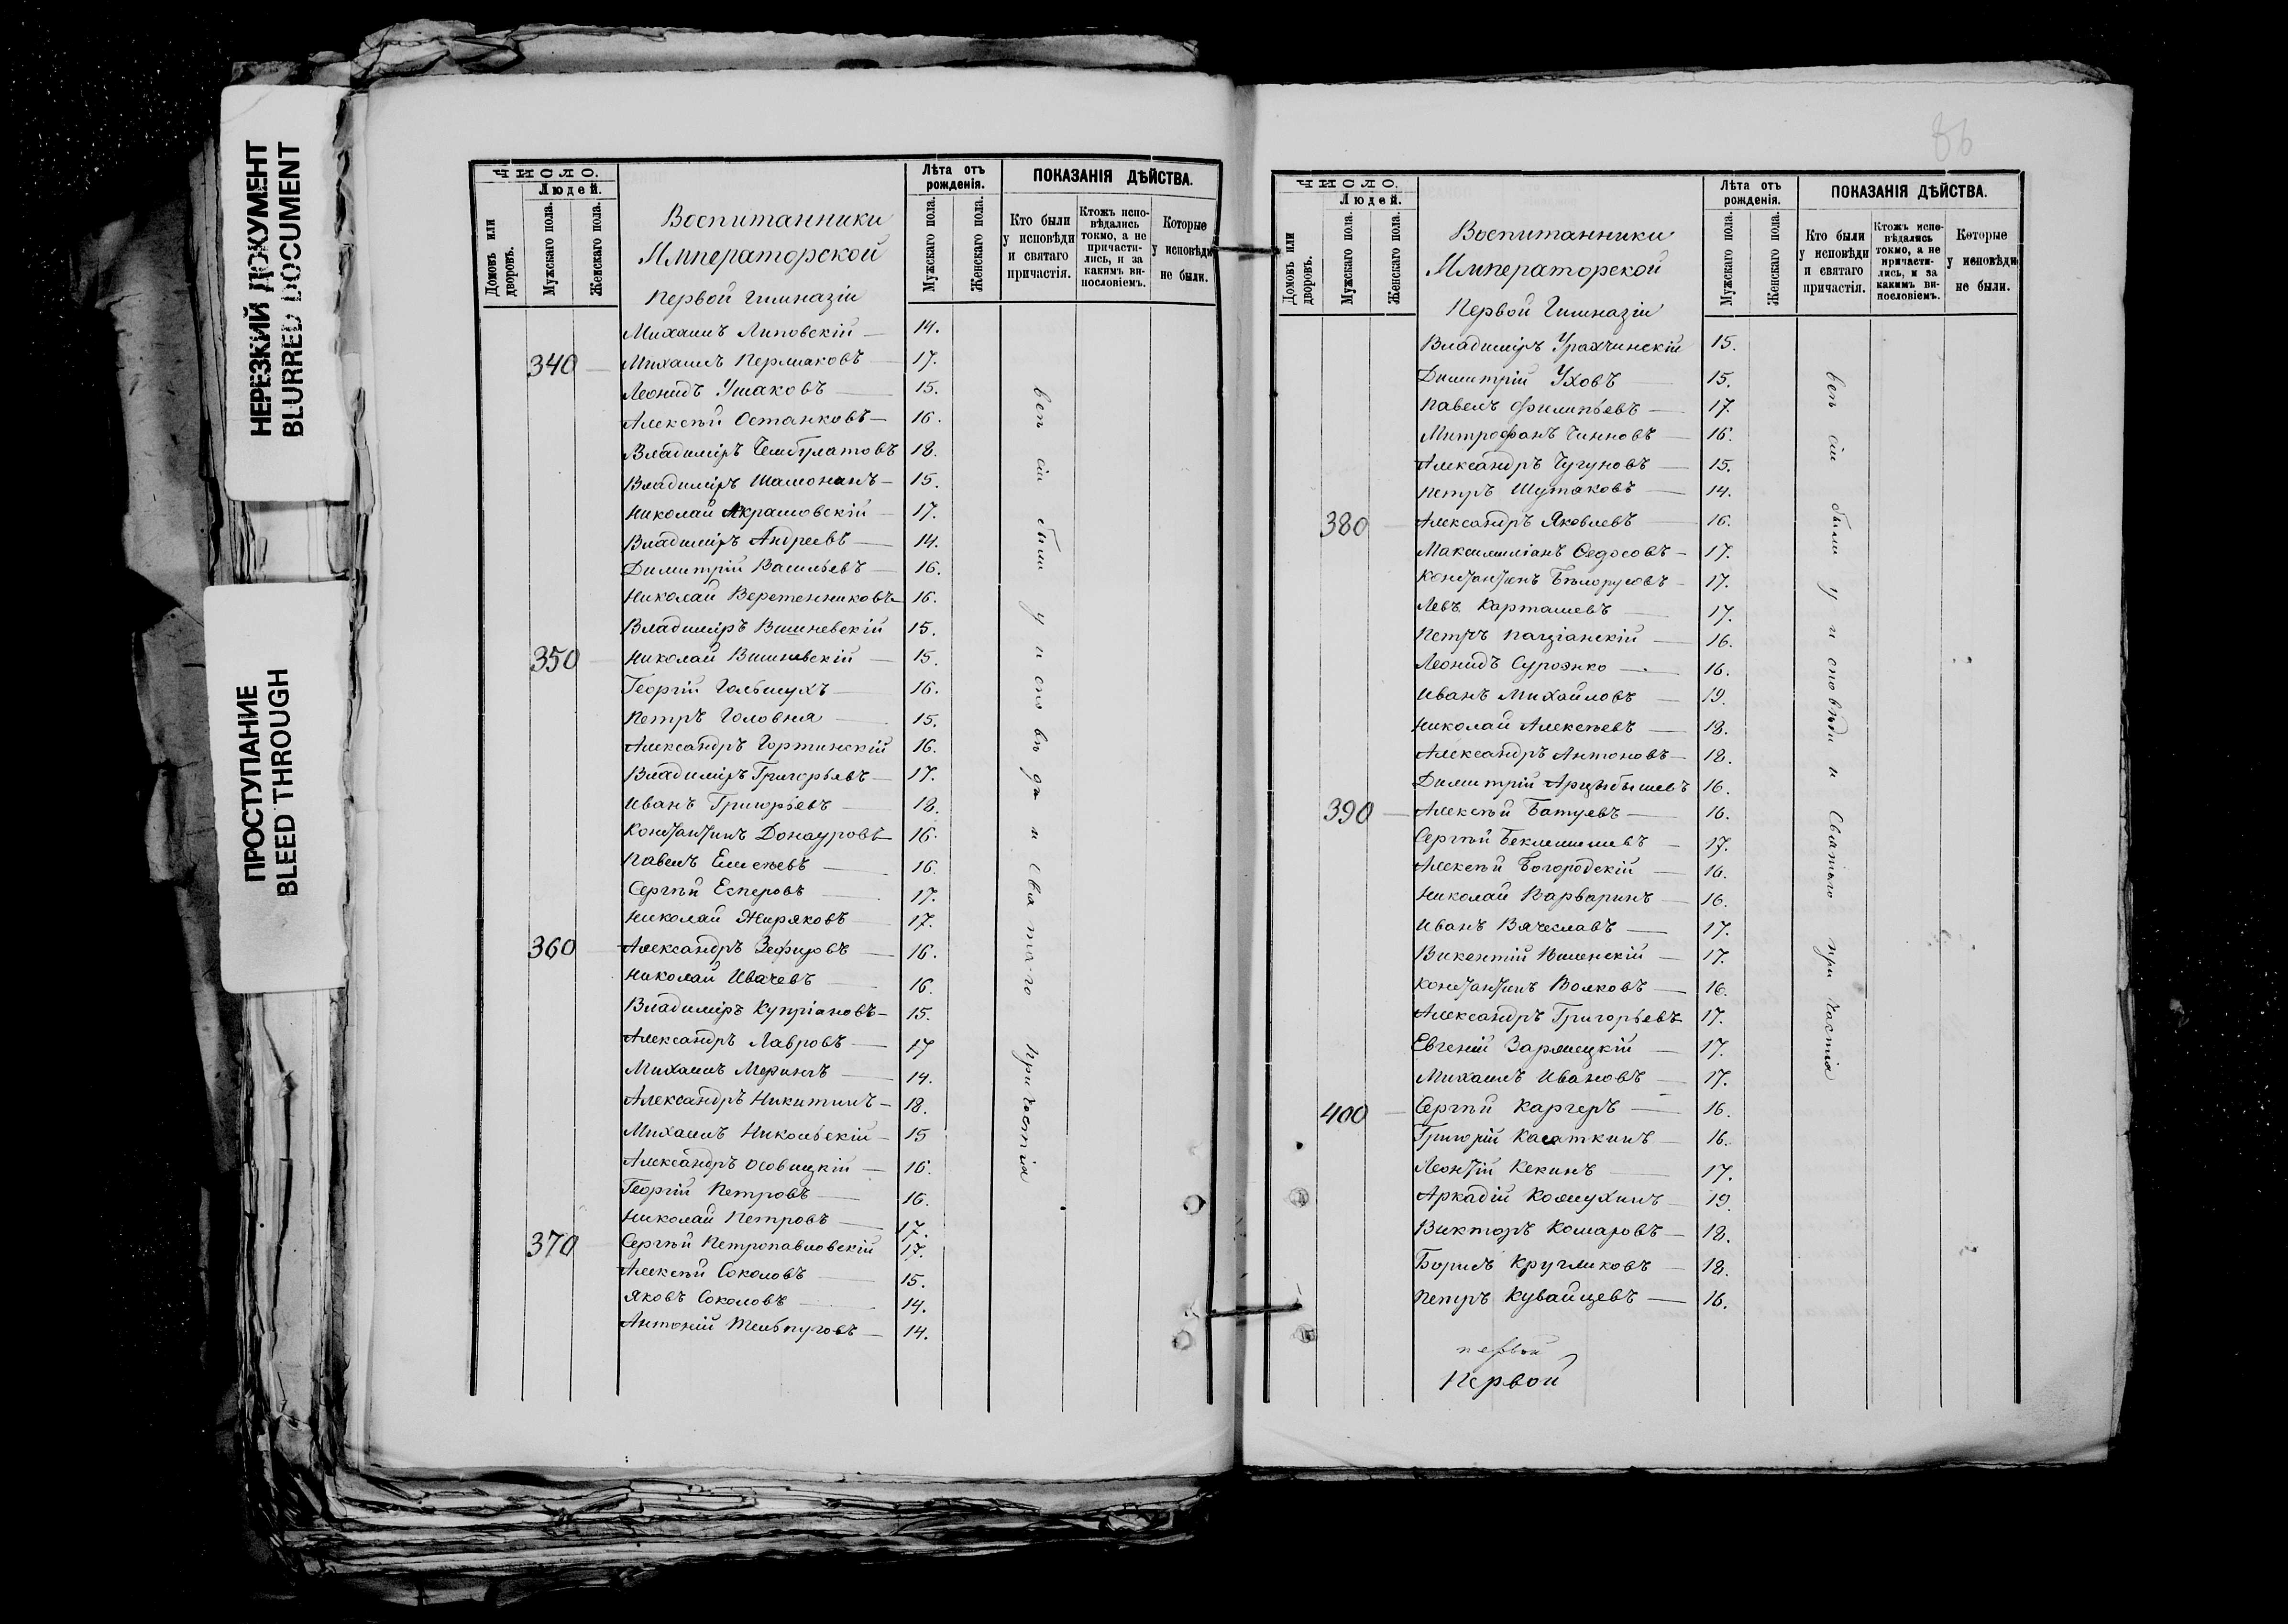 НЕРЕЗКИЙ ДОКУМЕНТ
BLURRED DOCUMENT
ПРОСТУПАНИЕ
BLEED THROUGH
ЧИСЛО.
Людей.
Домовъ или дворовъ.
Мужскаго пола.
Женскаго пола.
Воспитанники
Императорской
Первой Гимназіи
Лѣта отъ рожденія.
Мужскаго пола.
Женскаго пола.
ПОКАЗАНІЯ ДѢЙСТВА.
Кто были у исповѣди и святаго причастія.
Ктожъ исповѣдались токмо, а не причастились, и за какимъ винословіемъ.
Которые у исповѣди не были.
Михаилъ Липовскій — 14.
340 — Михаилъ Пермяковъ — 17.
Леонидъ Ушаковъ — 15.
Алексѣй Останковъ — 16.
Владиміръ Чембулатовъ 18.
Владиміръ Шамонинъ — 15.
Николай Акрамовскій — 17.
Владиміръ Андреевъ — 14.
Димитрій Васильевъ — 16.
Николай Веретенниковъ — 16.
Владиміръ Вишневскій 15.
350 — Николай Вишневскій — 15.
Георгій Гольмухъ — 16.
Петръ Головня — 15.
Александръ Гортинскій 16.
Владиміръ Григорьевъ — 17.
Иванъ Григорьевъ — 18.
Константинъ Донауровъ — 16.
Павелъ Елисѣевъ — 16.
Сергѣй Есперовъ — 17.
Николай Жиряковъ — 17.
360 — Александръ Зефировъ — 16.
Николай Ивачевъ — 16.
Владиміръ Купріановъ — 15.
Александръ Лавровъ — 17
Михаилъ Меринъ — 14.
Александръ Никитинъ — 18.
Михаилъ Никольскій — 15
Александръ Осовицкій — 16.
Георгій Петровъ — 16.
Николай Петровъ — 17.
370 — Сергѣй Петропавловскій 17.
Алексѣй Соколовъ — 15.
Яковъ Соколовъ — 14.
Антоній Тельпуговъ — 14.
всѣ сіи были у исповѣди и Святаго причастія
86
ЧИСЛО.
Людей.
Домовъ или дворовъ.
Мужскаго пола.
Женскаго пола.
Воспитанники
Императорской
Первой Гимназіи
Лѣта отъ рожденія.
Мужскаго пола.
Женскаго пола.
ПОКАЗАНІЯ ДѢЙСТВА.
Кто были у исповѣди и святаго причастія.
Ктожъ исповѣдались токмо, а не причастились, и за какимъ винословіемъ.
Которые у исповѣди не были.
Владиміръ Урахчинскій 15.
Димитрій Уховъ — 15.
Павелъ Филипьевъ — 17.
Митрофанъ Чинновъ — 16.
Александръ Чугуновъ — 15.
Петръ Шутяковъ — 14.
380 — Александръ Яковлевъ — 16.
Максимиліанъ Ѳедосовъ — 17.
Константинъ Бѣлорусовъ — 17.
Левъ Карташевъ — 17.
Петръ — 16.
Леонидъ — 16.
Иванъ Михайловъ — 19.
Николай Алексѣевъ — 18.
Александръ Антоновъ — 18.
Димитрій Арцыбышевъ 16.
390 — Алексѣй Батуевъ — 16.
Сергѣй Беклемишевъ — 17.
Алексѣй Богородскій — 16.
Николай Варваринъ — 16.
Иванъ Вячеславъ — 17.
Викентій Виленскій — 17.
Константинъ Волковъ — 16.
Александръ Григорьевъ 17.
Евгеній Зарницкій — 17.
Михаилъ Ивановъ — 17.
400 — Сергѣй Каргеръ — 16.
Григорій Касаткинъ — 16.
Леонтій Кекинъ — 17.
Аркадій Колмухинъ — 19.
Викторъ Комаровъ — 18.
Борисъ Кругликовъ — 18.
Петръ Кувайцевъ — 16.
всѣ сіи были у исповѣди и Святаго причастія
первой
Первой